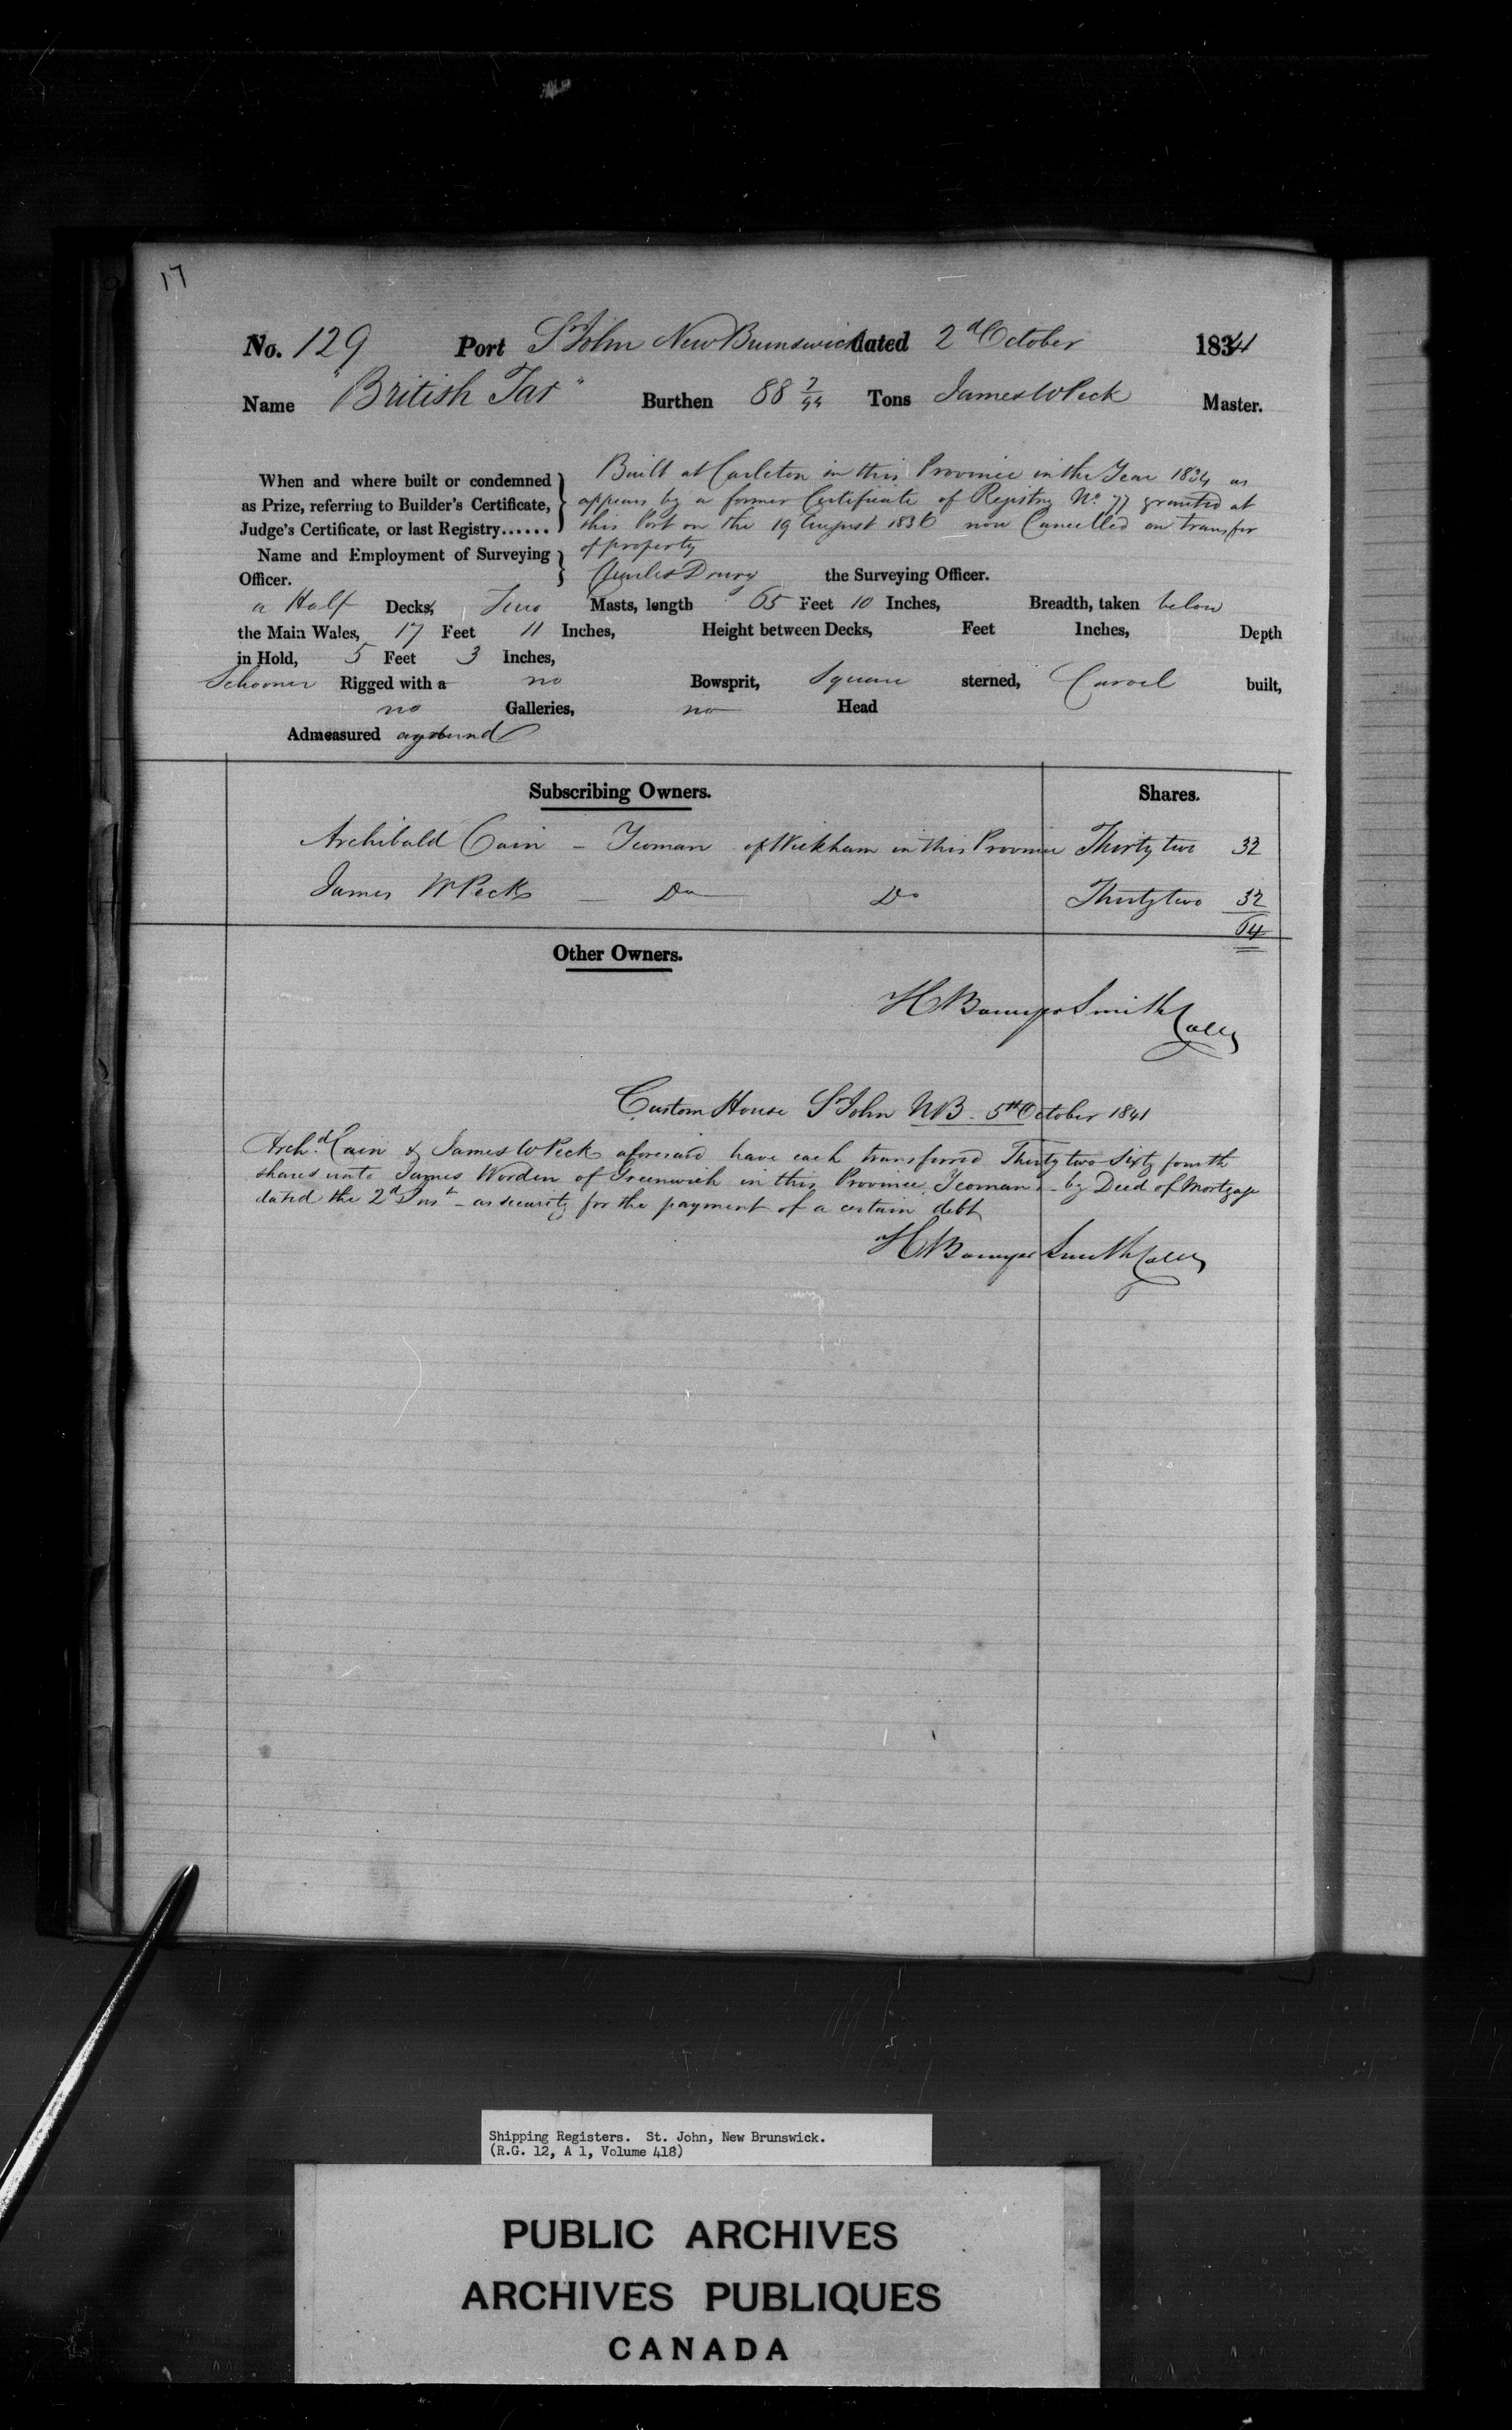 17
No. 129 Port St John New Brunswick dated 2d October 1841
Name "British Tar" Burthen 88 7/94 Tons James W Peck Master.
When and where built or condemned as Prize, referring to Builder's Certificate, Judge's Certificate, or last Registry......
Built at Carleton in this Province in the Year 1834 as
appears by a former Certificate of Registry No. 77 granted at
this Port on the 19 August 1836 now Cancelled on transfer
of property
Name and Employment of Surveying Officer.
Charles Drury the Surveying Officer.
a Half Decks, Two Masts, length 65 Feet 10 Inches, Breadth, taken below
the Main Wales, 17 Feet 11 Inches, Height between Decks, Feet Inches, Depth
in Hold, 5 Feet 3 Inches,
Schooner Rigged with a no Bowsprit, Square sterned, Carvel built,
no Galleries, no Head
Admeasured aground
Subscribing Owners. Shares.
Archibald Cain - Yeoman of Wickham in this Province Thirty two 32
James W Peck - Do Do Thirty two 32
64
Other Owners.
H Bowyer Smith Collr
Custom House St John NB. 5th October 1841
Archd. Cain & James W Peck aforesaid have each transferred Thirty two Sixty fourth
shares unto James Worden of Greenwich in this Province, Yeoman, - by Deed of Mortgage
dated the 2d Inst - as security for the payment of a certain debt
H Bowyer Smith Collr
Shipping Registers. St. John, New Brunswick.
(R.G. 12, A 1, Volume 418)
PUBLIC ARCHIVES
ARCHIVES PUBLIQUES
CANADA